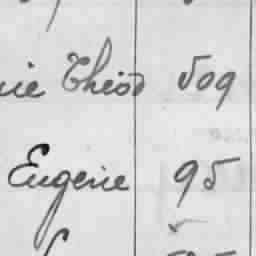 ie Théod 509
Eugenie 95